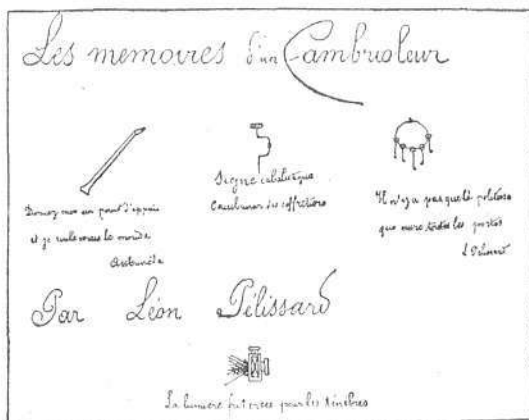 Les memoires d'un Cambrioleur
Donnez moi un point d'appui
et je souleverai le monde
Signe cabalistique
des coffretiers
Il n'y a pas que la politesse
que ouvre toutes les portes
L Pélissard
Par Léon Pélissard
La lumière fut créée pour les ténèbres